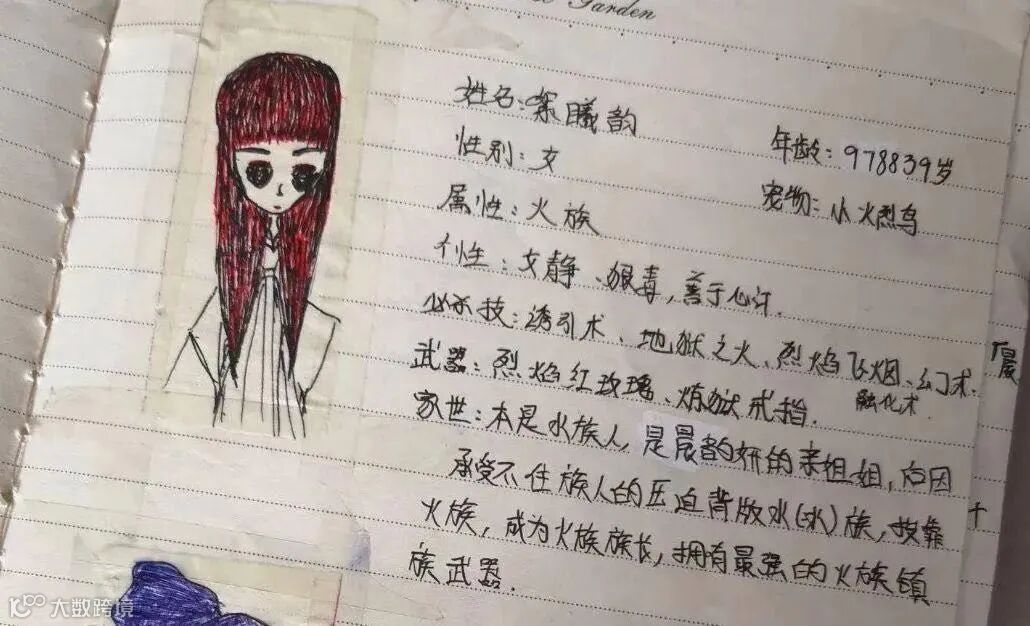 Garden
姓名:梁曦韵
年龄:978839岁
性别:女
宠物:小火烈鸟
属性:火族
个性:文静、狠毒,善于心计.
必杀技:诱引术、地狱之火、烈焰飞烟、幻术.
融化术.
武器:烈焰红玫瑰、炼狱戒指.
家世:本是水族人,是晨韵妍的亲姐姐,后因
承受不住族人的压迫背版水(冰)族,投靠
火族,成为火族族长,拥有最强的火族镇
族武器.
晨
大数跨境